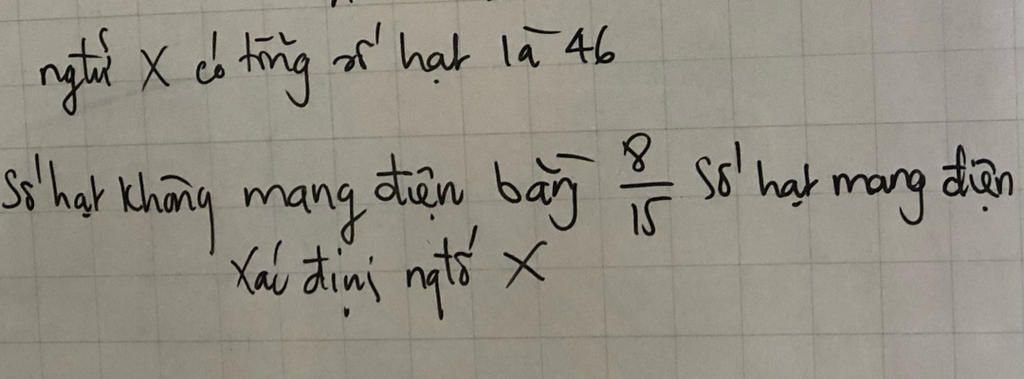 ngtử X có tổng số hạt là 46
Số hạt không mang điện bằng 8/15 số hạt mang điện
Xác định ngtố X